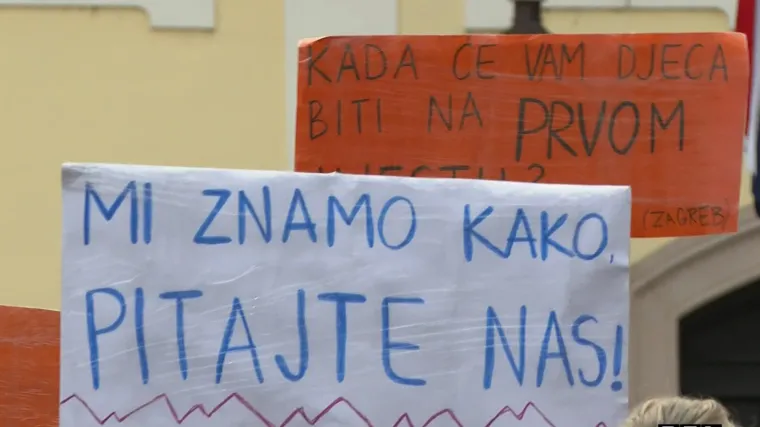 KADA ĆE VAM DJECA
BITI NA PRVOM
MJESTU?
(ZAGREB)
MI ZNAMO KAKO,
PITAJTE NAS!